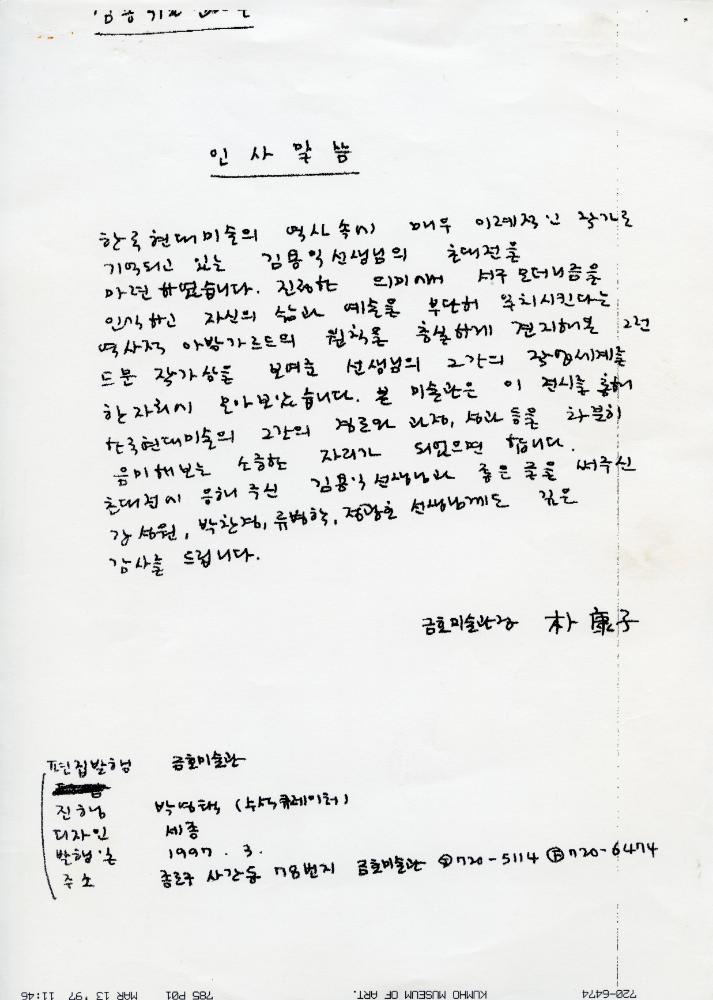 인사말씀
한국현대미술의 역사속에 매우 이례적인 작가로
기억되고 있는 김용익선생님의 초대전을
마련하였습니다. 진정한 의미에서 서구 모더니즘을
인식하고 자신의 삶과 예술을 부단히 일치시킨다는
역사적 아방가르드의 원칙을 충실하게 견지해온 그런
드문 작가상을 보여준 선생님의 그간의 작업세계를
한자리에 모아보았습니다. 본 미술관은 이 전시를 통해
한국현대미술의 그간의 경로와 과정, 성과 등을 차분히
음미해보는 소중한 자리가 되었으면 합니다.
초대전에 응해 주신 김용익선생님과 좋은 글을 써주신
강성원, 박찬경, 류병학, 정광호 선생님께도 깊은
감사를 드립니다.
금호미술관장 朴康子
편집발행 금호미술관
진행 박영택 (수석큐레이터)
디자인 세종
발행일 1997. 3.
주소 종로구 사간동 78번지 금호미술관 ☎720-5114 Ⓕ720-6474
720-6474 KUMHO MUSEUM OF ART. 785 P01 MAR 13 '97 11:46